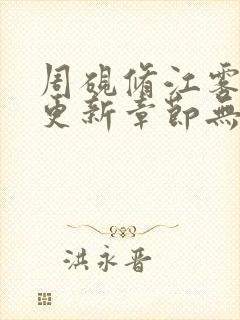 周砚脩江雾
更新章節無
洪永晋